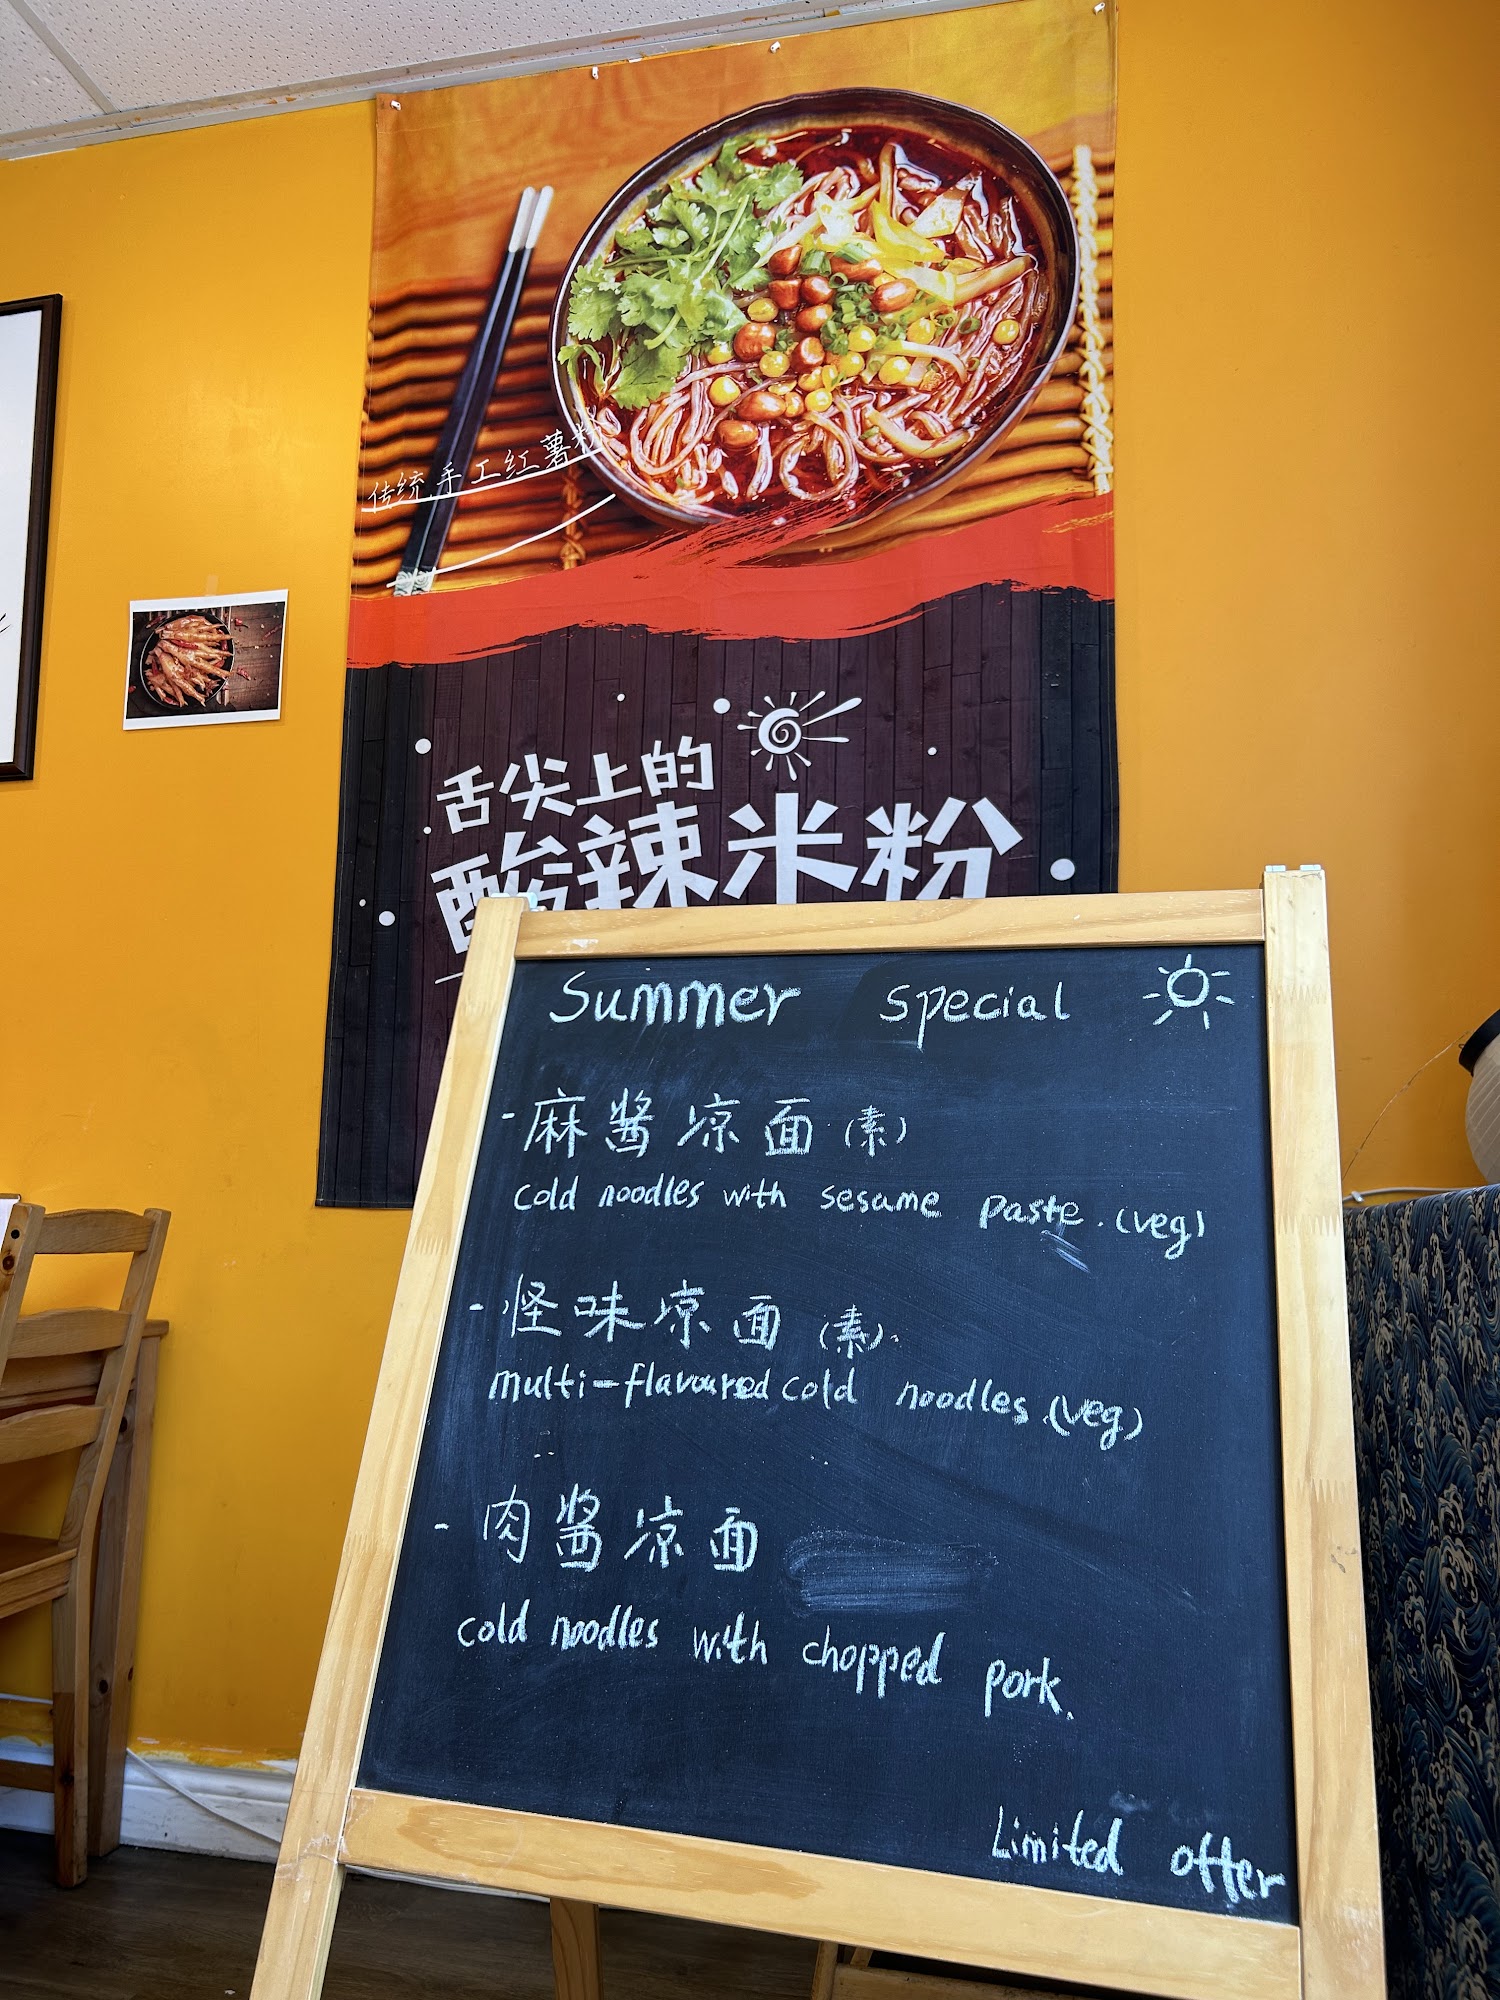 传统手工红薯粉
舌尖上的
酸辣米粉
Summer special
- 麻酱凉面 (素)
cold noodles with sesame paste. (veg)
- 怪味凉面 (素).
multi-flavoured cold noodles. (veg)
- 肉酱凉面
cold noodles with chopped pork.
Limited offer